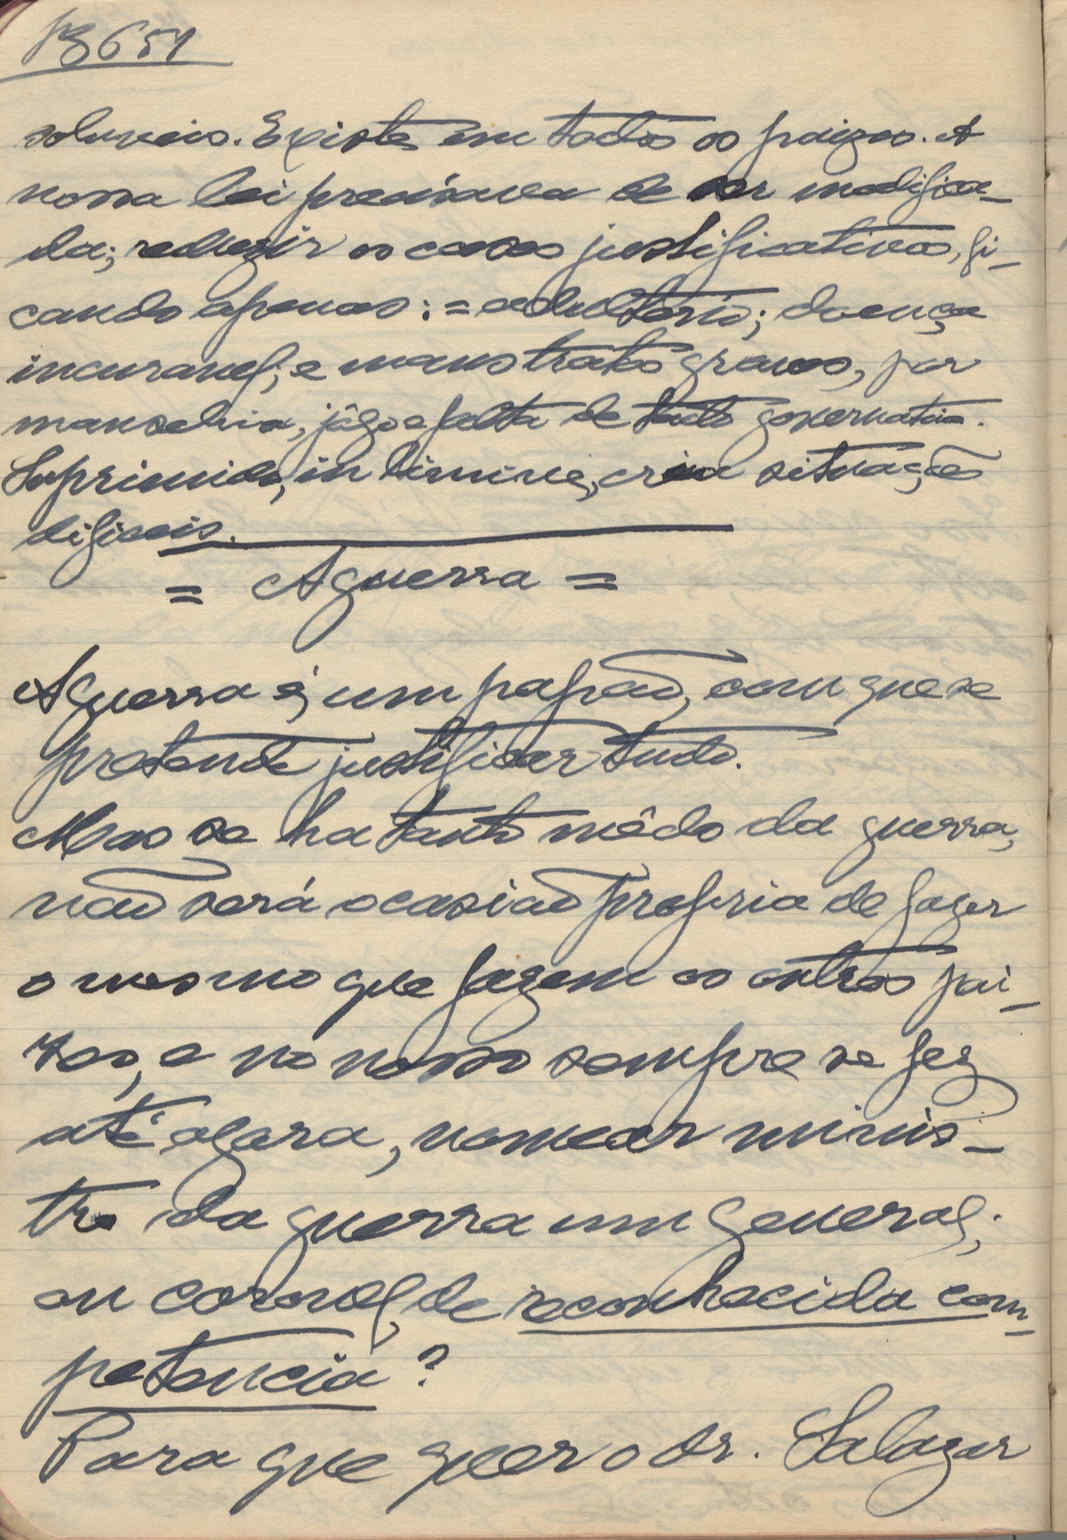 13651
soluveis. Existe em todos os paizes. A
nossa lei precisava de ser modifica-
da; reduzir os casos justificativos, fi-
cando apenas: = adulterio; doença
incuravel; e maus tratos graves, por
mancebia, jôgo e falta de tacto governativo.
Suprimida, in limine, cria situações
dificeis.
= A guerra =
A guerra é, um papão, com que se
pretende justificar tudo.
Mas se ha tanto mêdo da guerra,
não será ocasião propria de fazer
o mesmo que fazem os outros pai-
zes, e no nosso sempre se fez
até agora, nomear minis-
tro da guerra um general;
ou coronel, de reconhecida com-
petencia?
Para que quer o dr. Salazar